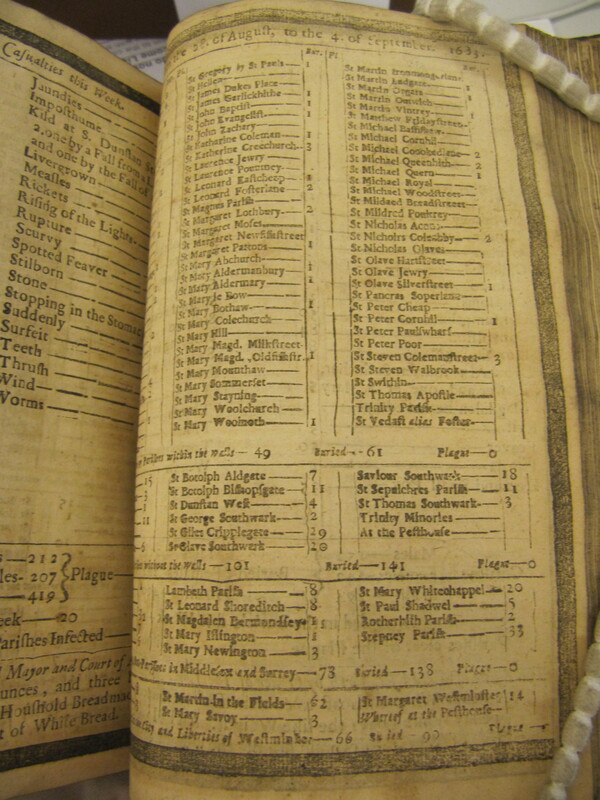 Casualties this Week.
Jaundies
Imposthume
Kild
at S. Dunstan
2. one by a Fall from
and one by the Fall of
Livergrown
Measles
Rickets
Rising of the Lights
Rupture
Scurvy
Spotted Feaver
Stilborn
Stone
Stopping in the Stomac
Suddenly
Surfeit
Teeth
Thrush
Wind
Worms
212
207
Plague
419
20
Parishes Infected
Mayor and Court of
ounces, and three
Houshold Breadma
of White Bread.
of August, to the 4. of September. 1683.
St Gregory by St Pauls
St Hellen
St James Dukes Place 1
St James Garlickhithe 1
St John Baptist 1
St John Evangelist 1
St John Zachary
St Katharine Coleman 1
St Katharine Creechurch 3
St Laurence Jewry
St Laurence Pountney
St Leonard Eastcheap
St Leonard Fosterlane 2
St Magnus Parish
St Margaret Lothbury 2
St Margaret Moses
St Margaret Newfishstreet
St Margaret Pattons 1
St Mary Abchurch
St Mary Aldermanbury 1
St Mary Aldermary
St Mary le Bow
St Mary Bothaw 1
St Mary Colechurch
St Mary Hill
St Mary Magd. Milkstreet
St Mary Magd. Oldfishstr. 1
St Mary Mounthaw
St Mary Sommerset
St Mary Stayning
St Mary Woolchurch
St Mary Woolnoth 1
St Martin Ironmongerlane
St Martin Ludgate
St Martin Orgars 1
St Martin Outwich
St Martin Vintrey 1
St Matthew Fridaystreet
St Michael Bassishaw
St Michael Cornhil
St Michael Crookedlane 2
St Michael Queenhith 2
St Michael Quern 1
St Michael Royal
St Michael Woodstreet
St Mildred Breadstreet
St Mildred Poultrey
St Nicholas Acons
St Nicholas Coleabby 2
St Nicholas Olaves
St Olave Hartstreet
St Olave Jewry
St Olave Silverstreet 1
St Pancras Soperlane
St Peter Cheap
St Peter Cornhil 1
St Peter Paulswharf
St Peter Poor
St Steven Colemanstreet 3
St Steven Walbrook
St Swithin
St Thomas Apostle
Trinity Parish
St Vedast alias Foster
Parishes within the walls 49 Buried 61 Plague 0
St Botolph Aldgate 7
St Botolph Bishopsgate 11
St Dunstan West 4
St George Southwark 2
St Giles Cripplegate 29
St Olave Southwark 20
Saviour Southwark 18
St Sepulchres Parish 11
St Thomas Southwark 3
Trinity Minories
At the Pesthouse
without the walls 101 Buried 141 Plague 0
Lambeth Parish 8
St Leonard Shoreditch 8
St Magdalen Bermondsey
St Mary Islington 1
St Mary Newington 3
St Mary Whitechappel 20
St Paul Shadwel 5
Rotherhith Parish 2
Stepney Parish 33
Parishes in Middlesex and Surrey 73 Buried 138 Plague 0
St Martin in the Fields 62
St Mary Savoy 3
St Margaret Westminster 14
Whereof at the Pesthouse
City and Liberties of Westminster 66 Buried 90 Plague